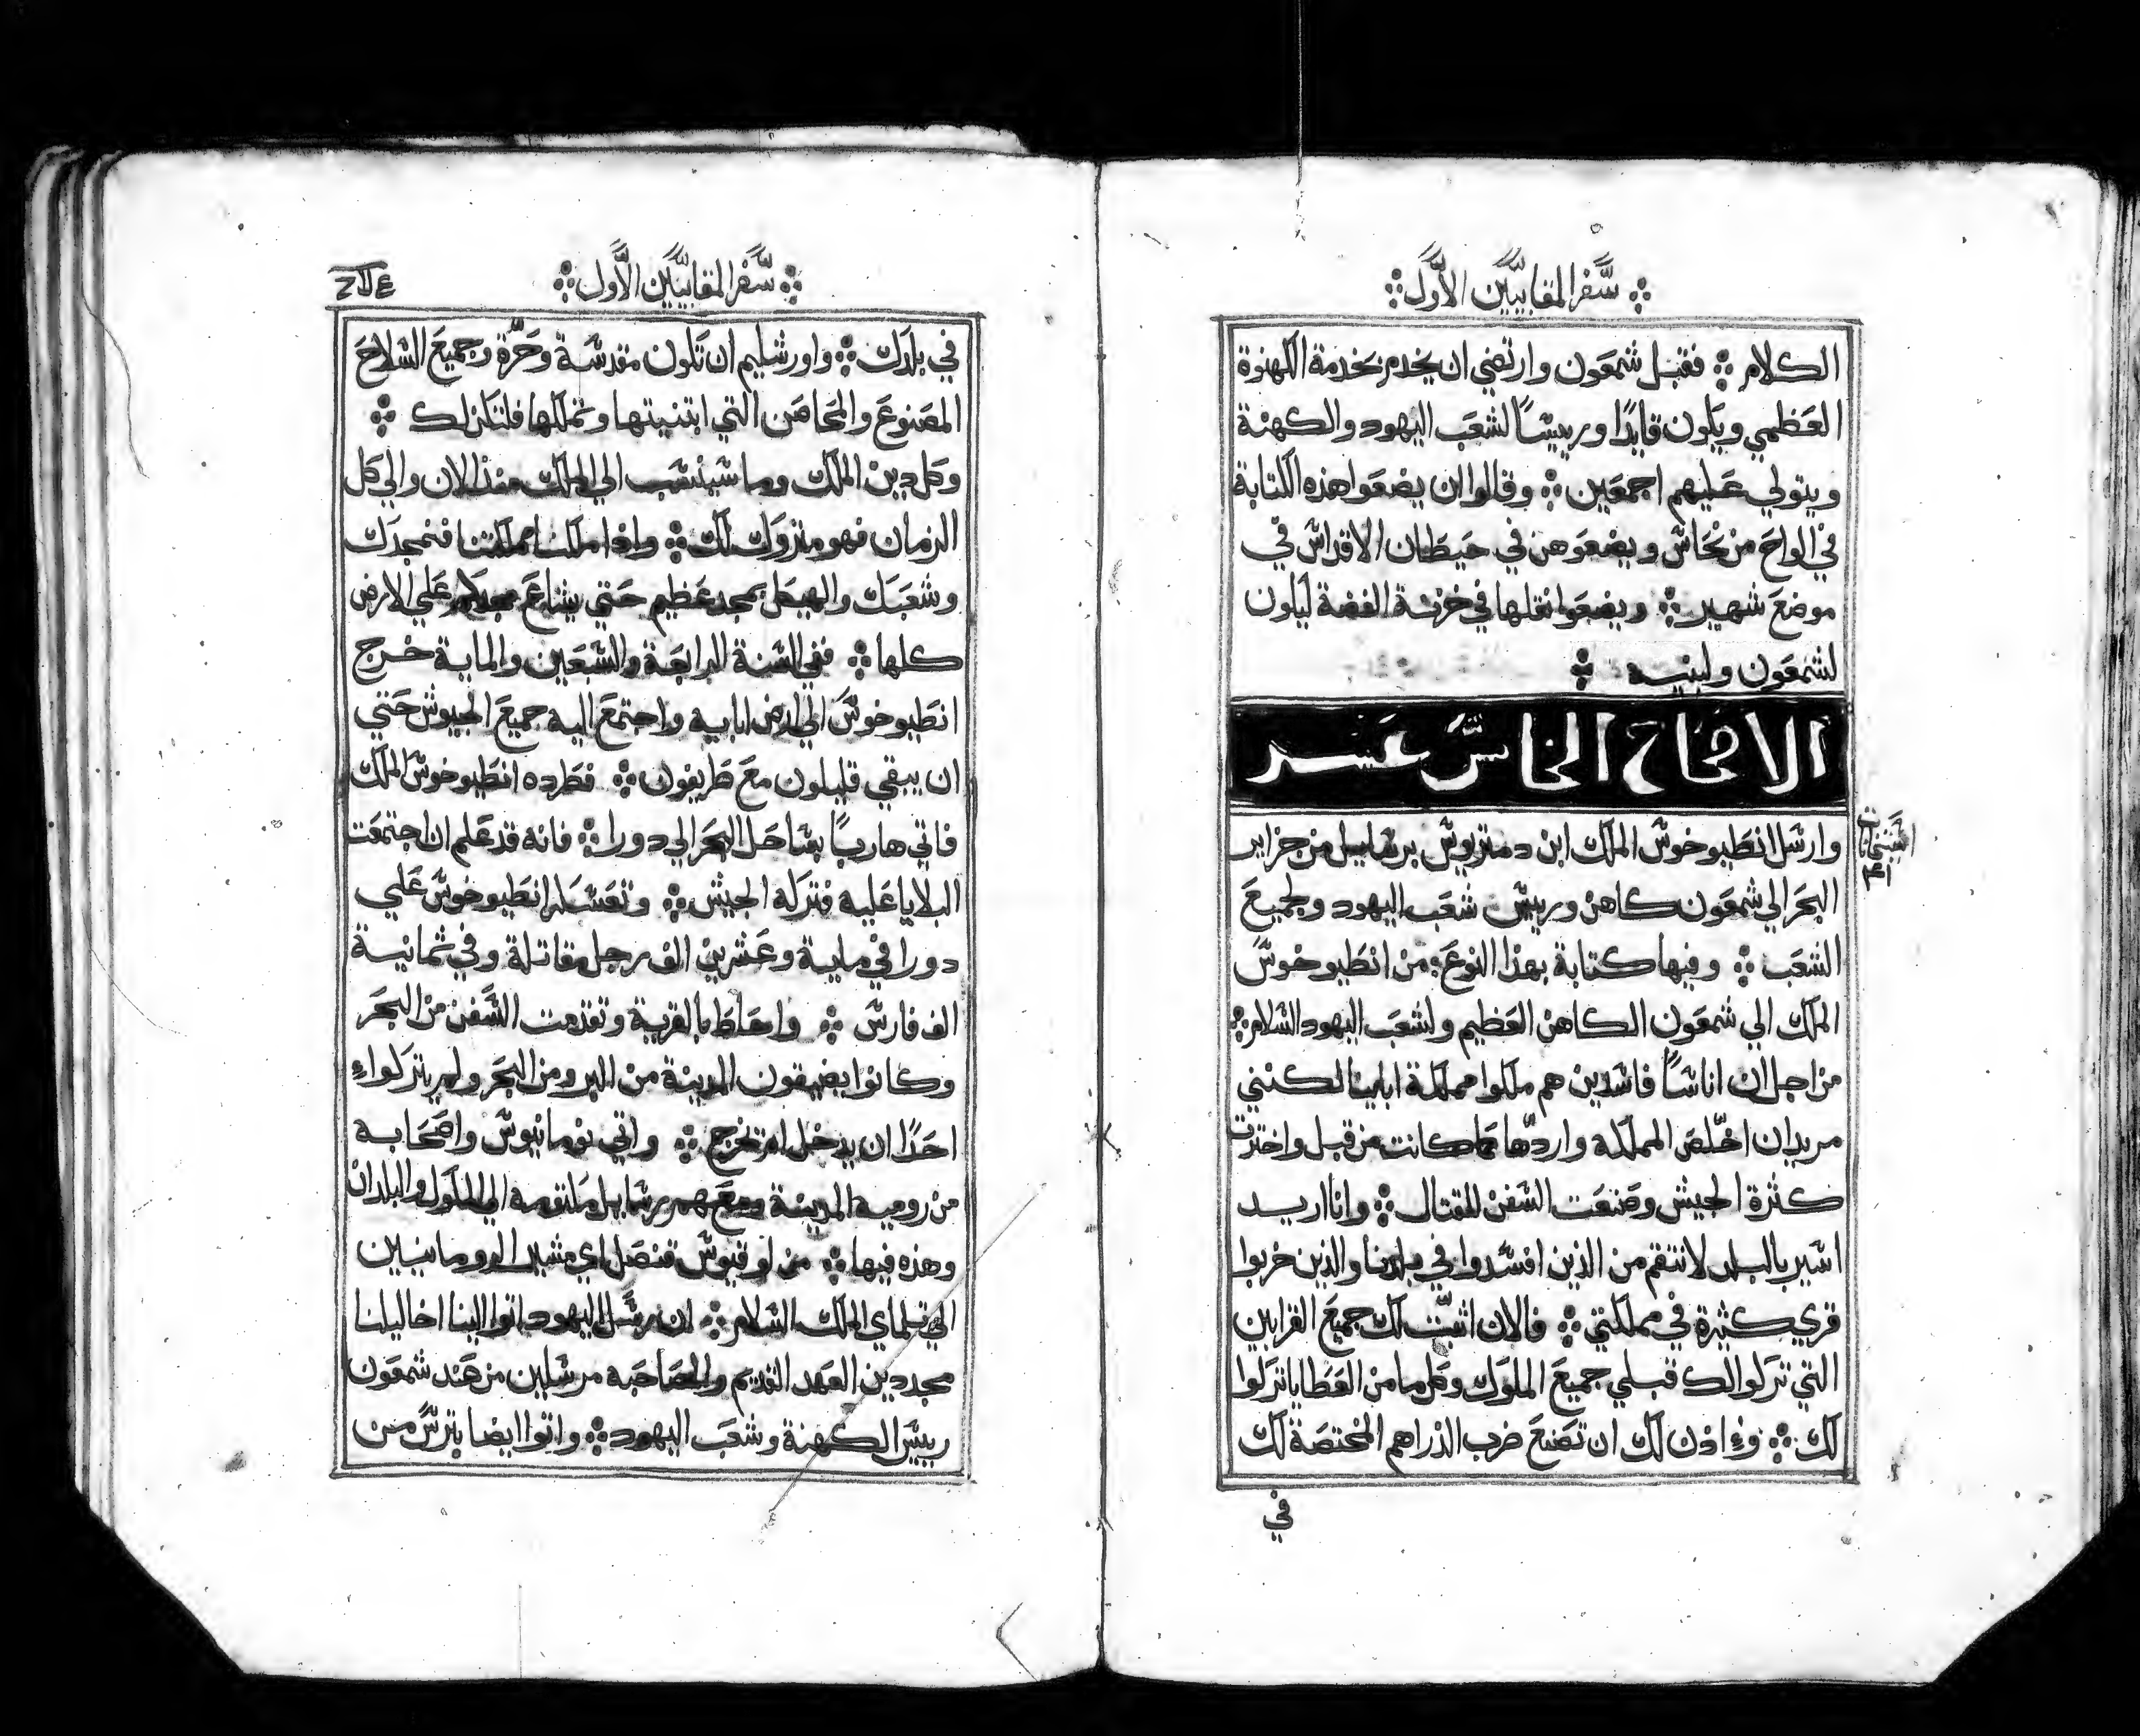 سفر المقابيين الاول
الكلام فقبل شمعون وارتضي ان يخدم بخدمة الكهنوة
العظمي ويكون قايدًا ورييسًا لشعب اليهود والكهنة
ويتولي عليهم اجمعين وقالوا ان يضعوا هذه الكتابة
في الواح من نحاس ويضعوهن في حيطان الاقداس في
موضع شهير ويضعوا نقلها في خزنة الفضة ليكون
لشمعون ولبنيه
الافتتاح الخامس عشر
وارسل انطيوخوس الملك ابن دمتريوس برسايل من جزاير
البحر الي شمعون كاهن ورييس شعب اليهود ولجميع
الشعب وفيها كتابة بهذا النوع من انطيوخوس
الملك الي شمعون الكاهن العظيم ولشعب اليهود السلام
من اجل ان اناسًا فاسدين هم ملكوا مملكة اباينا لكنني
مريد ان اخلّص المملكة واردّها كما كانت من قبل واخترت
كثرة الجيش وصنعت السفن للقتال وانا اريد
اسير بالبلد لانتقم من الذين افسدوا في بلدنا والذين خربوا
قري كثيرة في مملكتي فالان اثبّت لك جميع القرابين
التي تركوا لك قبلي جميع الملوك وكل ما من العطايا تركوا
لك وءاذن لك ان تصنع ضرب الدراهم المختصة لك
في
سفر المقابيين الاول
في بلدك واورشليم ان تكون مقدسة وحرّة وجميع السلاح
المصنوع والمحاصن التي ابتنيتها وتملكها فلتكن لك
وكل دين الملك وما سينسب الي الملك منذ الان والي كل
الزمان فهو متروك لك واذا ملكنا مملكتنا فنمجدك
وشعبك والهيكل بمجد عظيم حتي يشاع مجدكم علي الارض
كلها ففي السنة الرابعة والسبعين والماية خرج
انطيوخوس الي ارض ابايه واجتمع اليه جميع الجيوش حتي
ان يبقي قليلون مع طريفون فطرده انطيوخوس الملك
فاتي هاربًا بساحل البحر الي دورا فانه قد علم ان اجتمعت
البلايا عليه فتركه الجيش وتعسكر انطيوخوس علي
دورا في ماية وعشرين الف رجل مقاتلة وفي ثمانية
الف فارس واحاط بالقرية وتقدمت السفن من البحر
وكانوا يضيقون المدينة من البر ومن البحر ولم يتركواء
احدًا ان يدخل او يخرج واتي نومانيوس واصحابه
من رومية المدينة ومعهم رسايل مكتوبة الي الملوك والبلدان
وهذه فيها من لوقيوس قنصل اي مشير الرومانيين
الي تلماي الملك السلام ان رسل اليهود اتوا الينا اخاليلنا
مجددين العهد القديم والمصاحبه مرسلين من عند شمعون
رييس الكهنة وشعب اليهود واتوا ايضا بترس من